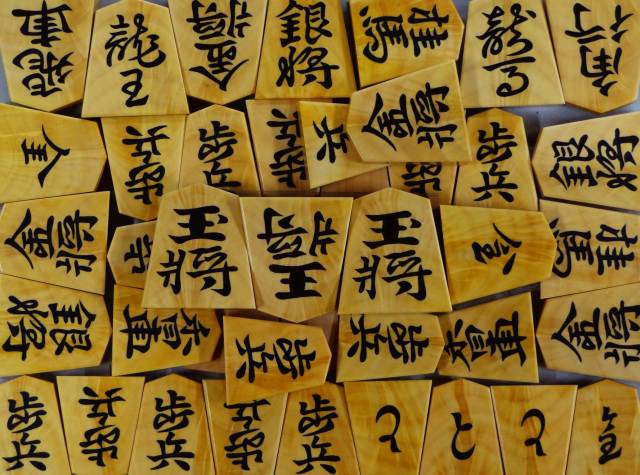 飛車
龍王
金将
銀将
桂馬
龍馬
角行
歩兵
歩兵
歩兵
兵
金将
歩兵
銀将
金将
王将
王将
王将
桂馬
銀将
香車
歩兵
歩兵
香車
金将
歩兵
歩兵
歩兵
歩兵
歩兵
と
と
と